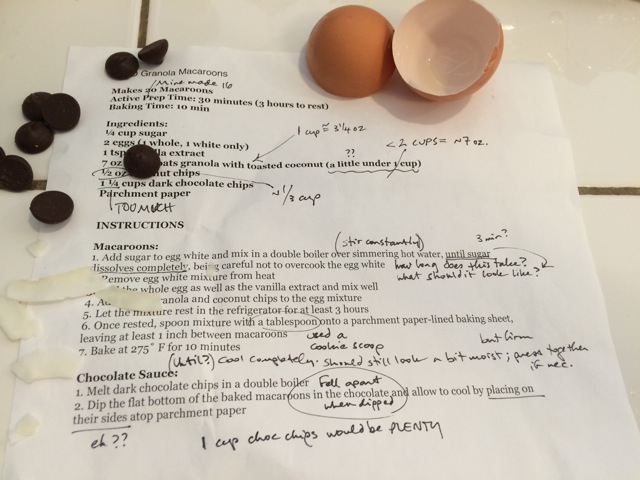 Granola Macaroons
/Mine made 16
Makes 20 Macaroons
Active Prep Time: 30 minutes (3 hours to rest)
Baking Time: 10 min
Ingredients:
1 cup ≅ 3 1/4 oz
¼ cup sugar
< 2 CUPS = ~7 oz.
2 eggs (1 whole, 1 white only)
1 tsp vanilla extract
??
7 oz oats granola with toasted coconut (a little under 1 cup)
1/2 oz coconut chips
~ 1/3 cup
1 ¼ cups dark chocolate chips
Parchment paper
TOO MUCH
INSTRUCTIONS
(stir constantly)
3 min?
Macaroons:
1. Add sugar to egg white and mix in a double boiler over simmering hot water, until sugar
dissolves completely, being careful not to overcook the egg white
how long does this take?
what should it look like?
Remove egg white mixture from heat
the whole egg as well as the vanilla extract and mix well
4. granola and coconut chips to the egg mixture
5. Let the mixture rest in the refrigerator for at least 3 hours
6. Once rested, spoon mixture with a tablespoon onto a parchment paper-lined baking sheet,
leaving at least 1 inch between macaroons
used a
cookie scoop
7. Bake at 275° F for 10 minutes
but firm
(Until?) Cool completely. Should still look a bit moist; press together
if nec.
Chocolate Sauce:
1. Melt dark chocolate chips in a double boiler
Fell apart
when dipped
2. Dip the flat bottom of the baked macaroons in the chocolate and allow to cool by placing on
their sides atop parchment paper
eh??
1 cup choc chips would be PLENTY